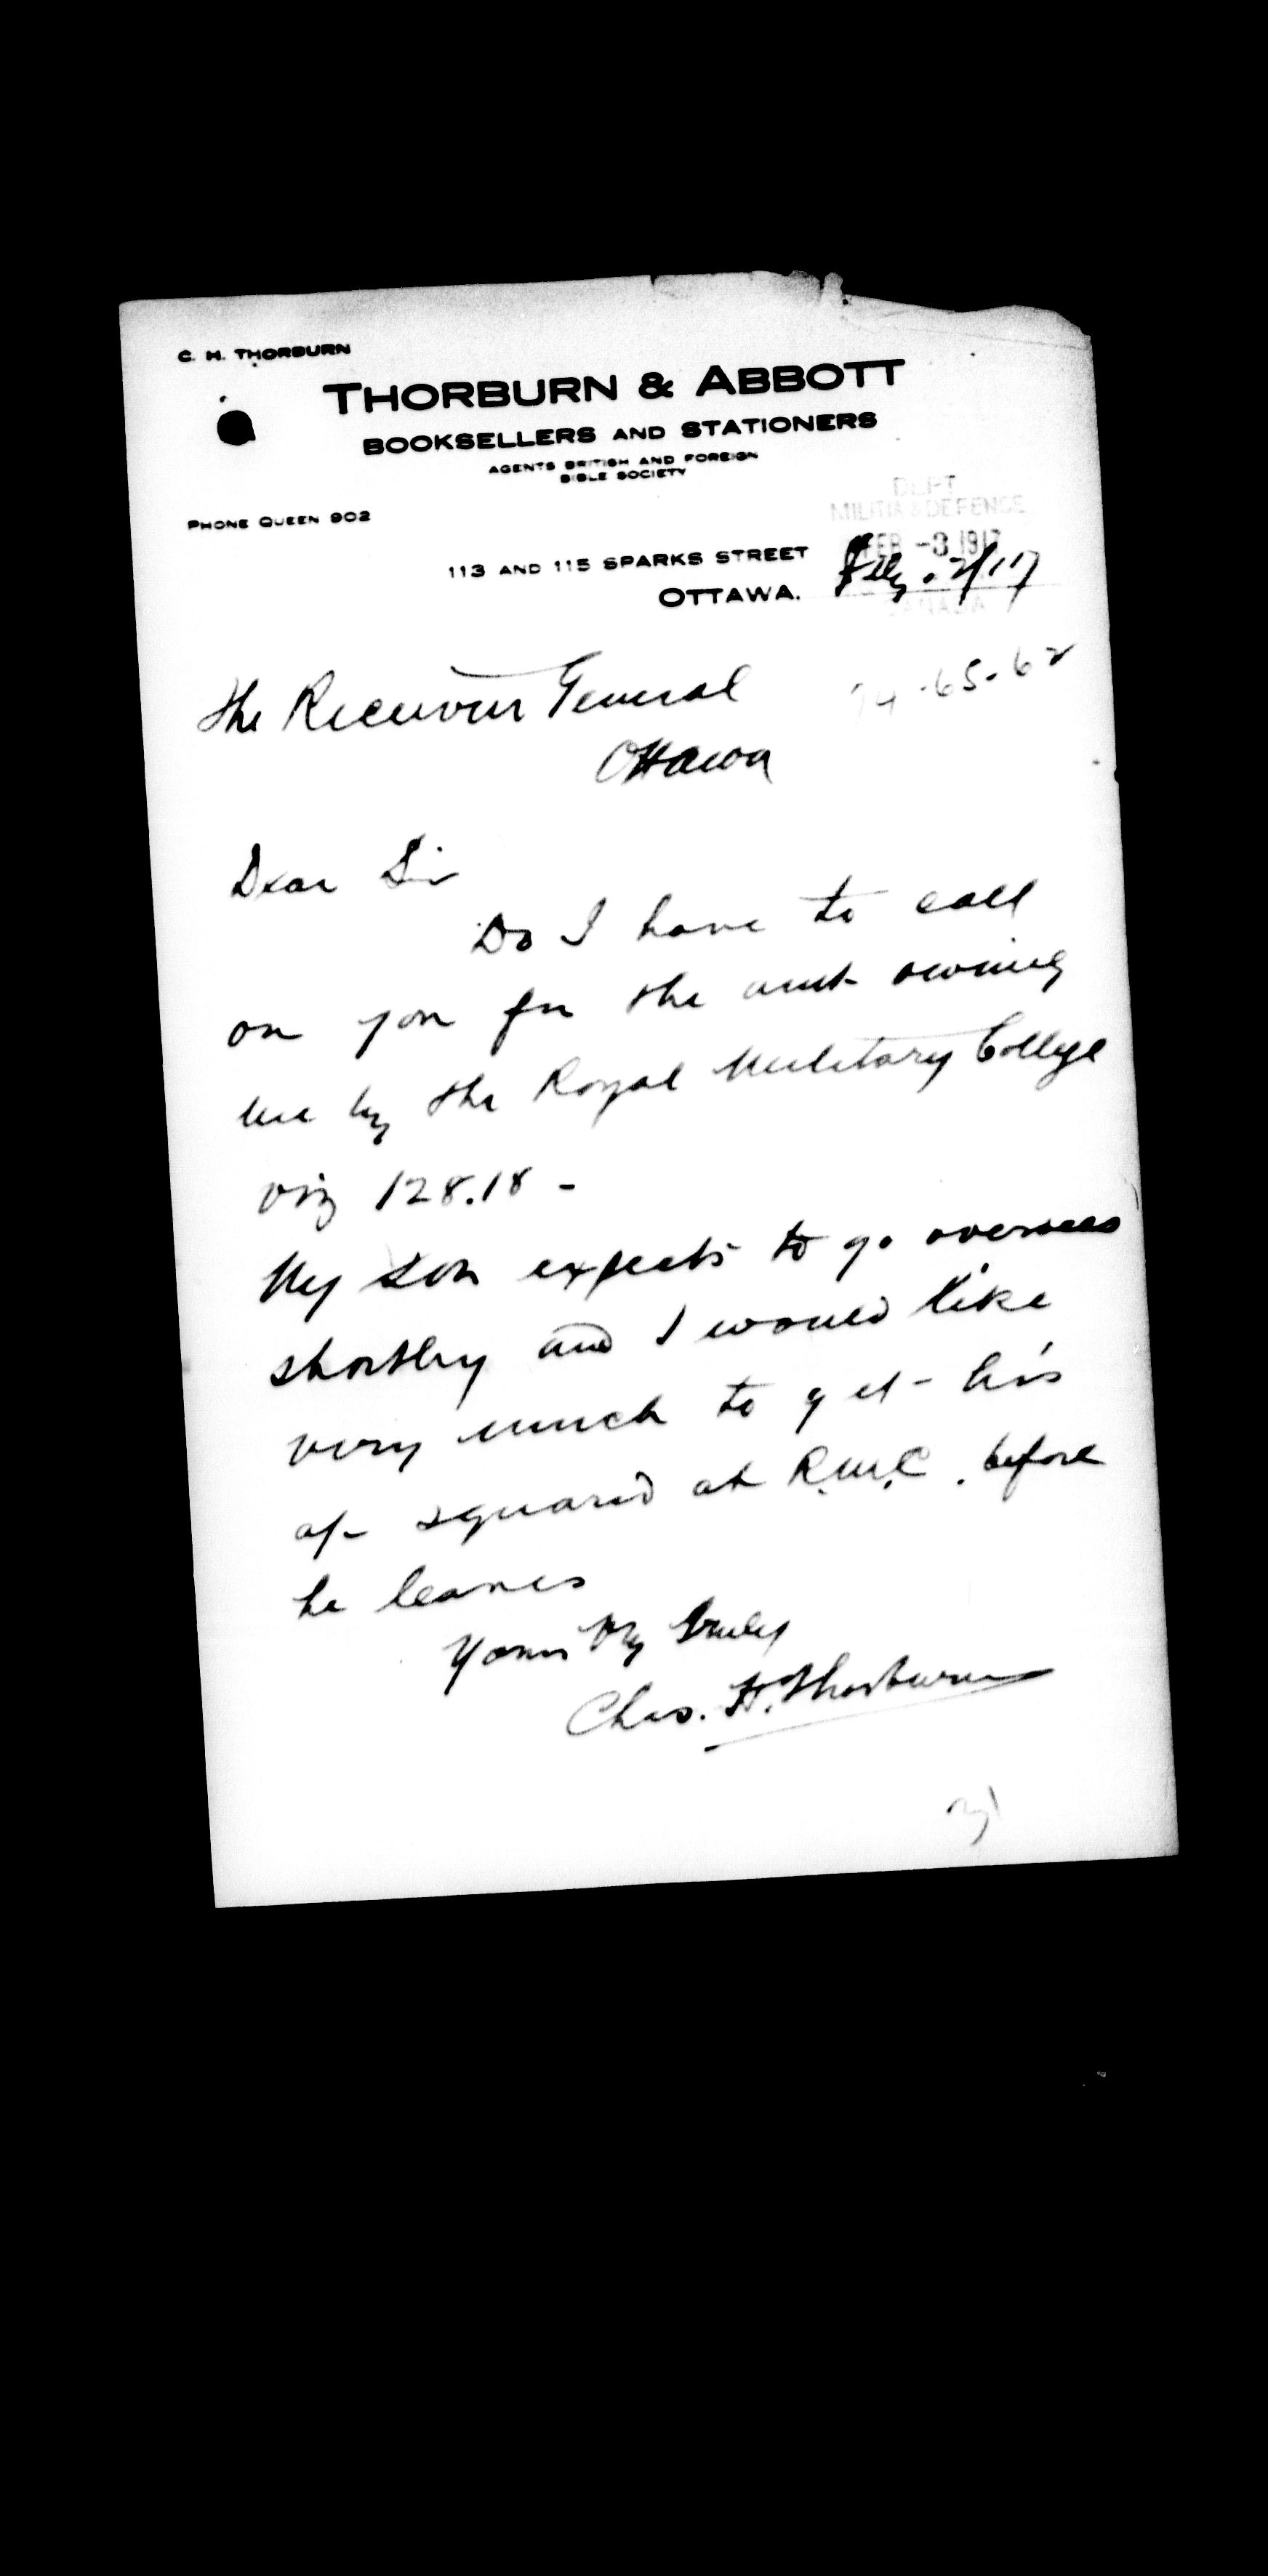 C. H. THORBURN
THORBURN & ABBOTT
BOOKSELLERS AND STATIONERS
AGENTS BRITISH AND FOREIGN
BIBLE SOCIETY
PHONE QUEEN 902
DEPT.
MILITIA & DEFENCE
FEB -3 1917
CANADA
113 AND 115 SPARKS STREET
OTTAWA. Feby. 2/17
The Receiver General
-65-62
Ottawa
Dear Sir
Do I have to call
on you for the amt owing
me by the Royal Military College
viz 128.18 -
My son expects to go overseas
shortly and I would like
very much to get his
a/c squared at R.M.C. before
he leaves
Yours Vy Truly
Chas. H. Thorburn